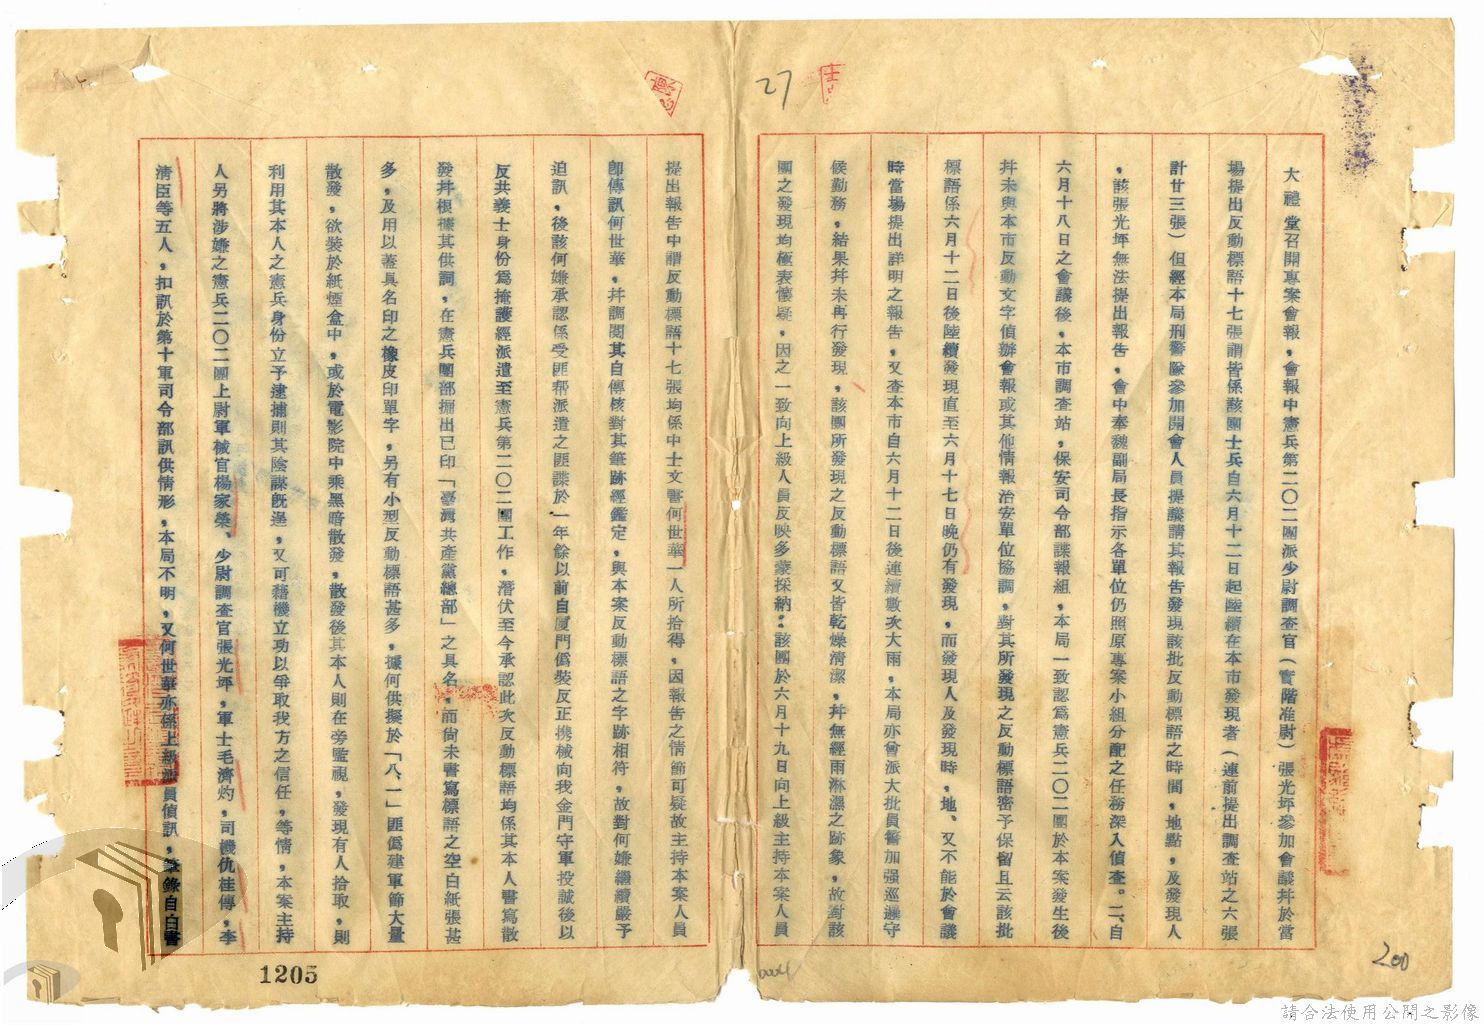 27
大禮堂召開專案會報，會報中憲兵第二〇二團派少尉調查官（實階准尉）張光坪參加會議幷於當
場提出反動標語十七張謂皆係該團士兵自六月十二日起陸續在本市發現者（連前提出調查站之六張
計廿三張）但經本局刑警隊參加開會人員提議請其報告發現該批反動標語之時間，地點，及發現人
，該張光坪無法提出報告，會中奉魏副局長指示各單位仍照原專案小組分配之任務深入偵查。二、自
六月十八日之會議後，本市調查站，保安司令部諜報組，本局一致認爲憲兵二〇二團於本案發生後
幷未與本市反動文字偵辦會報或其他情報治安單位協調，對其所發現之反動標語密予保留且云該批
標語係六月十二日後陸續發現直至六月十七日晚仍有發現，而發現人及發現時，地、又不能於會議
時當場提出詳明之報告，又查本市自六月十二日後連續數次大雨，本局亦曾派大批員警加强巡邏守
候勤務，結果幷未再行發現，該團所發現之反動標語又皆乾燥淸潔，幷無經雨淋濕之跡象，故對該
團之發現均極表懷疑，因之一致向上級人員反映多蒙採納：該團於六月十九日向上級主持本案人員
提出報告中謂反動標語十七張均係中士文書何世華一人所拾得，因報告之情節可疑故主持本案人員
卽傳訊何世華，幷調閱其自傳核對其筆跡經鑑定，與本案反動標語之字跡相符，故對何嫌繼續嚴予
迫訊，後該何嫌承認係受匪帮派遣之匪諜於一年餘以前自厦門僞裝反正携械向我金門守軍投誠後以
反共義士身份爲掩護經派遣至憲兵第二〇二團工作，潛伏至今承認此次反動標語均係其本人書寫散
發幷根據其供詞，在憲兵團部搠出已印「臺灣共產黨總部」之具名，而尙未書寫標語之空白紙張甚
多，及用以蓋具名印之橡皮印單字，另有小型反動標語甚多，據何供擬於「八、一」匪僞建軍節大量
散發，欲裝於紙煙盒中，或於電影院中乘黑暗散發，散發後其本人則在旁監視，發現有人拾取，則
利用其本人之憲兵身份立予逮捕則其陰謀旣逞，又可藉機立功以爭取我方之信任，等情，本案主持
人另將涉嫌之憲兵二〇二團上尉軍械官楊家榮、少尉調查官張光坪，軍士毛濟灼，司機仇桂傳，李
淸臣等五人，扣訊於第十軍司令部訊供情形，本局不明，又何世華亦係上級派員偵訊，筆錄自白書
200
1205
請合法使用公開之影像